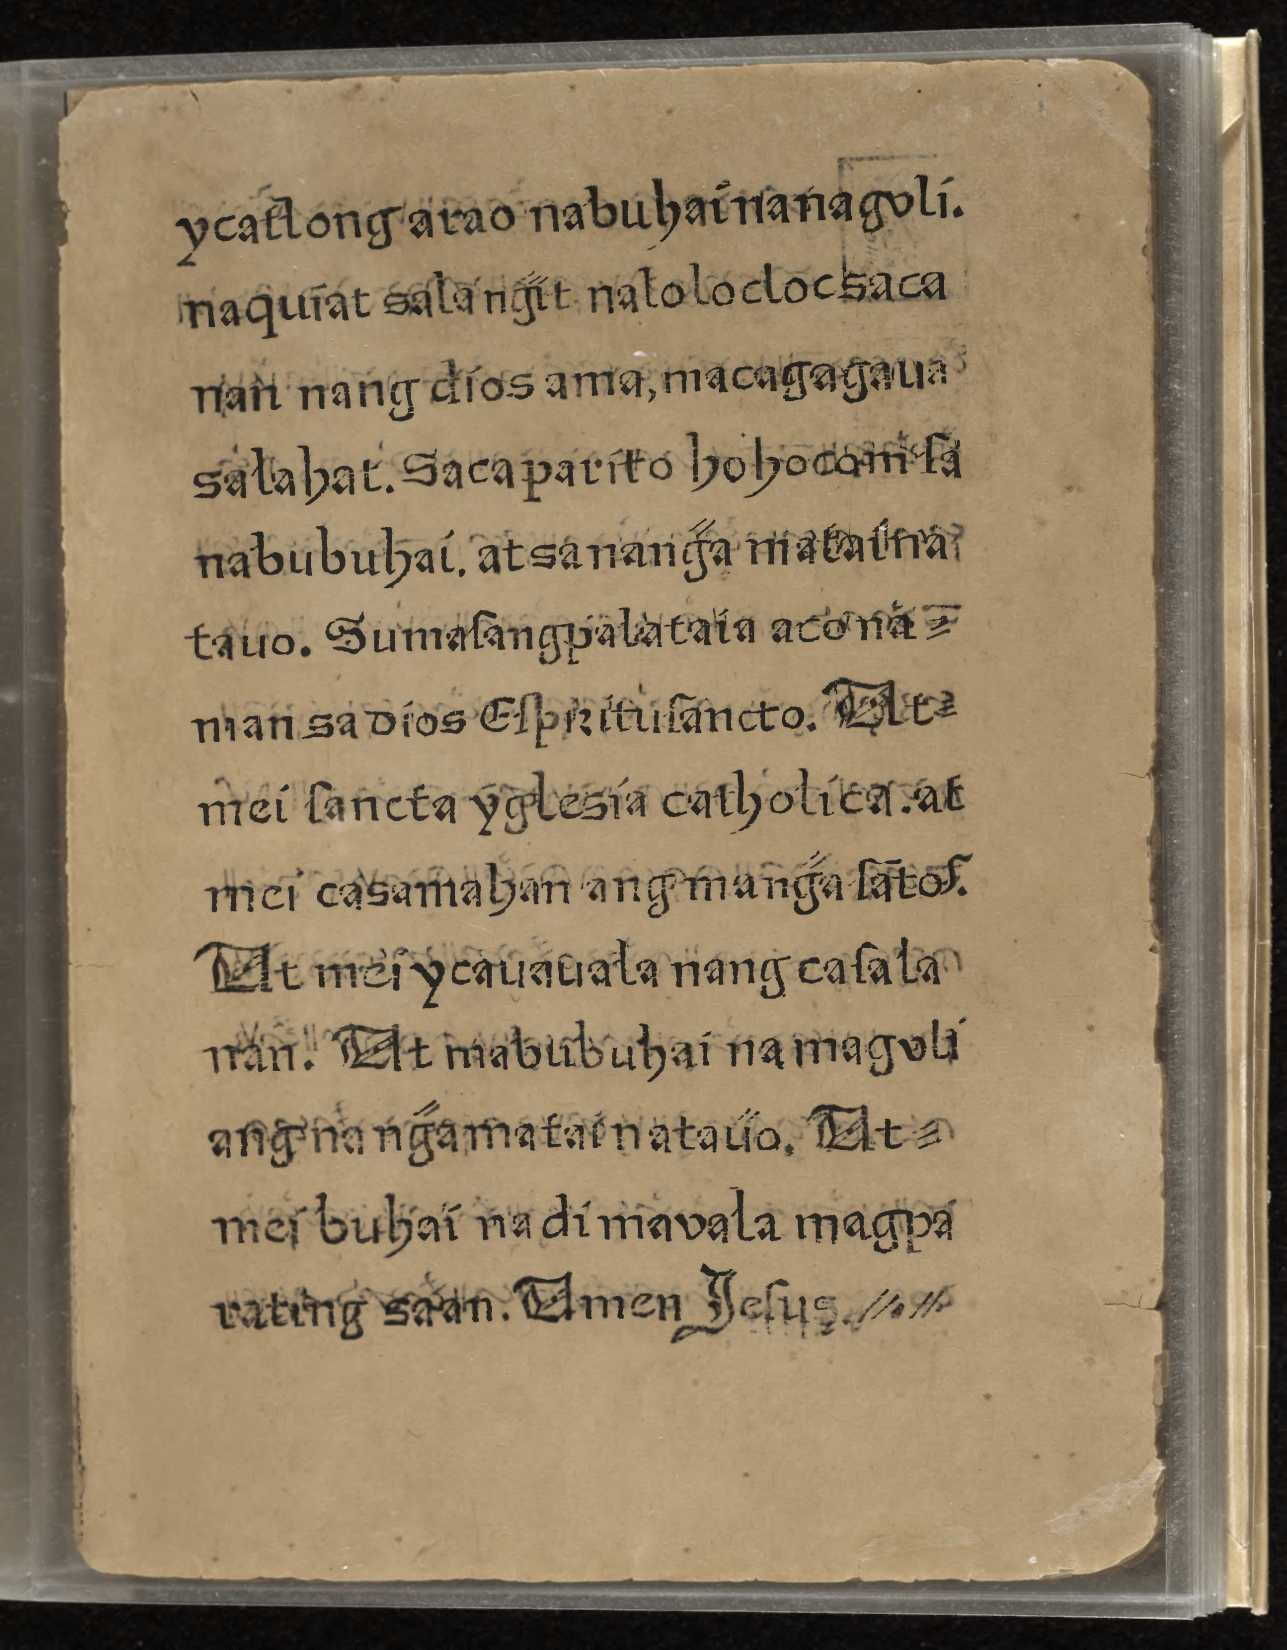 ycatlong arao nabuhai nanagvli.
naquiat sa lang̃it nalolocloc saca
nan nang dios ama, macagagaua
salahat. Sacaparito hohocom ſa
nabubuhai. at sa nang̃a matai na
tauo. Sumaſangpalataia aco na=
man sa dios Eſpiritu ſancto. At=
mei ſancta yglesia catholica. at
mei casamahan ang mang̃a ſātoſ.
At mei ycauauala nang caſala
nan. At mabubuhai na magvli
ang na ng̃a matai na tauo. At=
mei buhai na di mavala magpa
rating saan. Amen Jeſus.//.//.